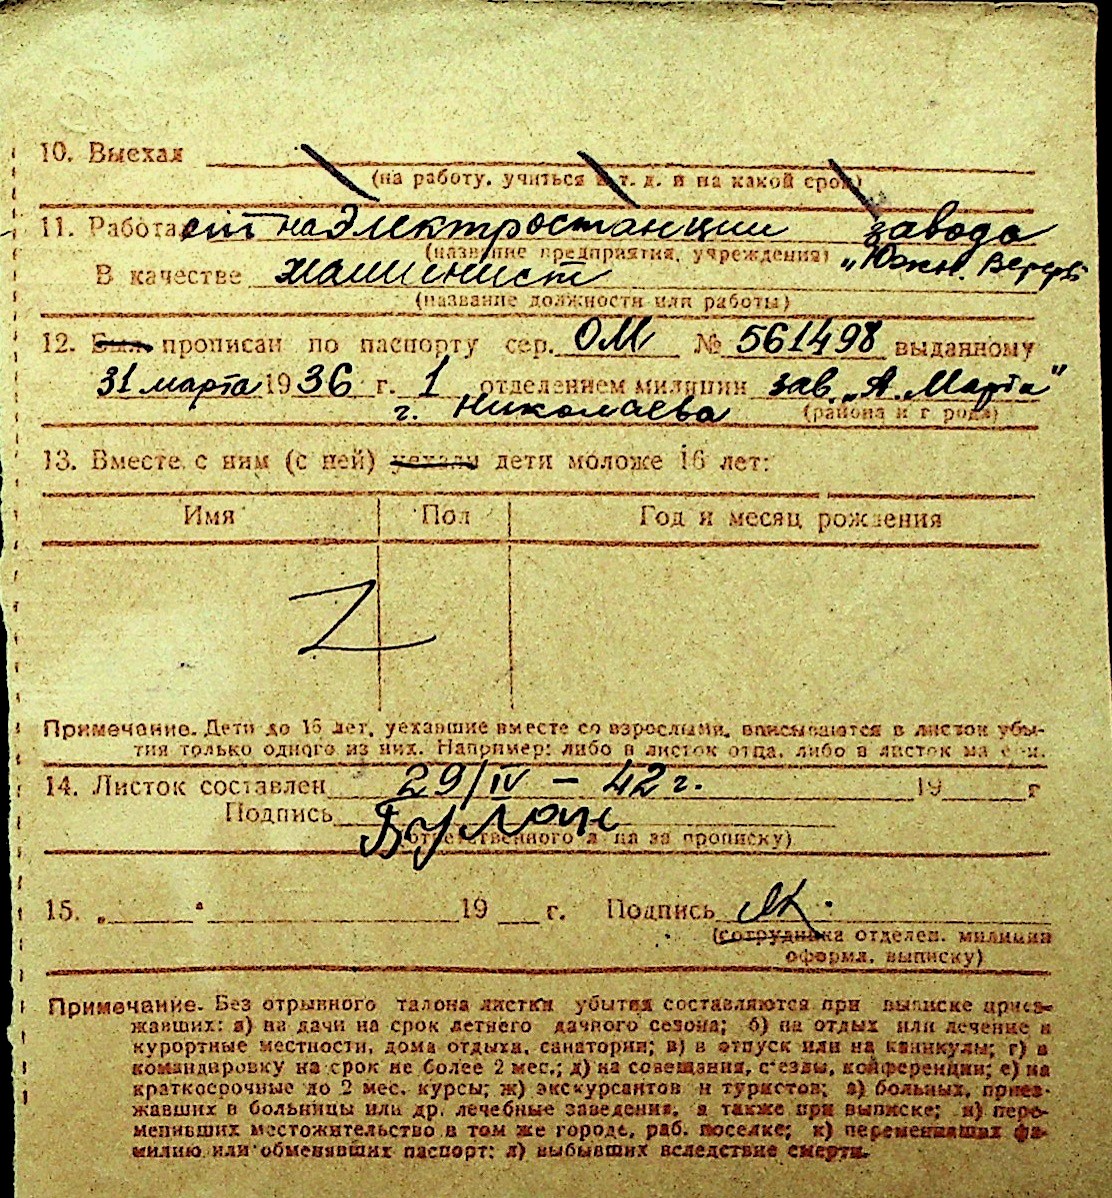 10. Выехал
(на работу, учиться и т. д. и на какой срок)
11. Работает на электростанции завода
(название предприятия, учреждения) „Южн. Верфь
В качестве машинист
(название должности или работы)
12. Был прописан по паспорту сер. ОМ № 561498 выданному
31 марта 1936 г. 1 отделением милиции зав. „А. Марти"
г. Николаева (района и города)
13. Вместе с ним (с ней) уехали дети моложе 16 лет:
Имя Пол Год и месяц рождения
Z
Примечание. Дети до 16 лет, уехавшие вместе со взрослыми, вписываются в листок убы-
тия только одного из них. Например: либо в листок отца, либо в листок матери.
14. Листок составлен 29/IV – 42 г. 19 г
Подпись Булан
(ответственного лица за прописку)
15. „ " 19 г. Подпись
(сотрудника отделен. милиции
оформл. выписку)
Примечание. Без отрывного талона листки убытия составляются при выписке приез-
жавших: а) на дачи на срок летнего дачного сезона; б) на отдых или лечение в
курортные местности, дома отдыха, санатории; в) в отпуск или на каникулы; г) в
командировку на срок не более 2 мес.; д) на совещания, с'езды, конференции; е) на
краткосрочные до 2 мес. курсы; ж) экскурсантов и туристов; з) больных, приез-
жавших в больницы или др. лечебные заведения, а также при выписке; и) пере-
менивших местожительство в том же городе, раб. поселке; к) переменивших фа-
милию или обменявших паспорт; л) выбывших вследствие смерти.